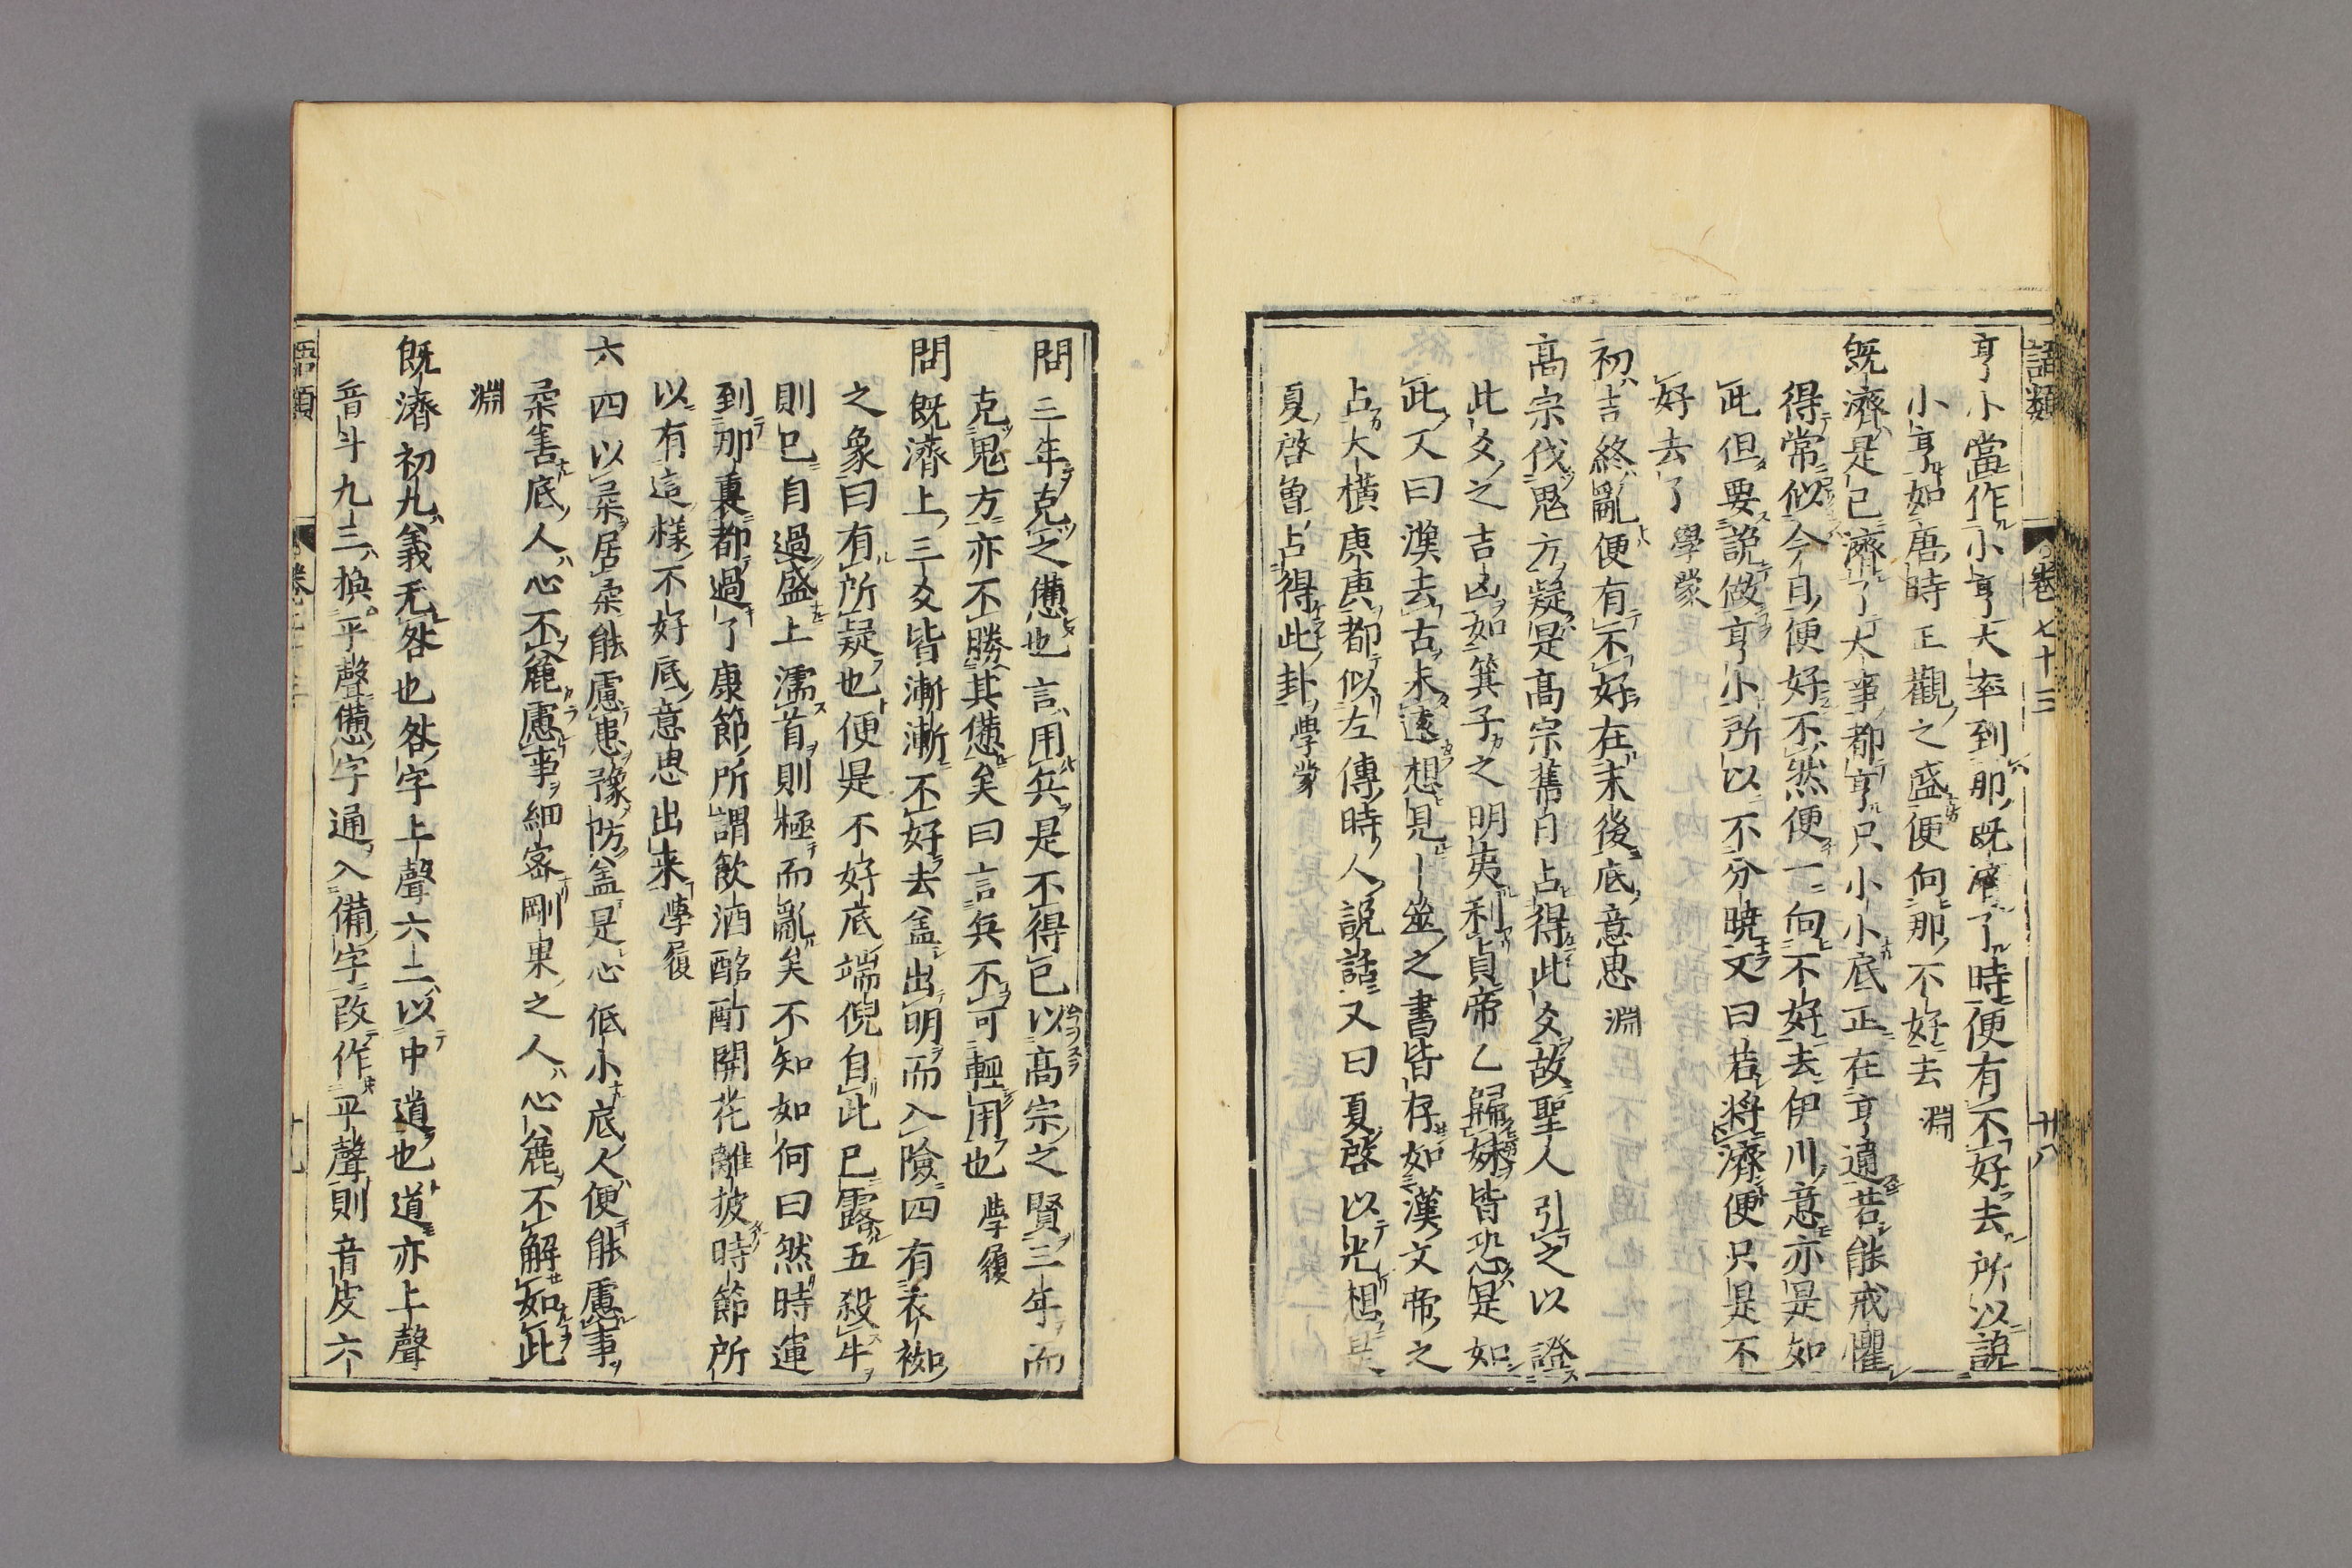 語類 卷七十三 十八
亨小當作小亨大率到那既濟了時便有不好去所以說
小亨如唐時正觀之盛便向那不好去 淵
既濟是已濟了大事都亨只小小底正在亨通若能戒懼
得常似今日便好不然便一向不好去伊川意亦是如
此但要說做亨小所以不分曉又曰若將濟便只是不
好去了 學蒙
初吉終亂便有不好在末後底意思 淵
高宗伐鬼方疑是高宗舊日占得此爻故聖人引之以證
此爻之吉凶如箕子之明夷利貞帝乙歸妹皆恐是如
此又曰漢去古未遠想見卜筮之書皆存如漢文帝之
占大橫庚庚都似左傳時人說話又曰夏啓以光想是
夏啓曾占得此卦 學蒙
問三年克之憊也言用兵是不得已以高宗之賢三年而
克鬼方亦不勝其憊矣曰言兵不可輕用也 學履
問既濟上三爻皆漸漸不好去盖出明而入險四有衣袽
之象曰有所疑也便是不好底端倪自此已露五殺牛
則已自過盛上濡首則極而亂矣不知如何曰然時運
到那裏都過了康節所謂飲酒酩酊開花離披時節所
以有這樣不好底意思出来 學履
六四以柔居柔能慮患豫防盖是心低小底人便能慮事
柔善底人心不麄慮事細密剛果之人心麄不解如此
淵
既濟初九義无咎也咎字上聲六二以中道也道亦上聲
音斗九三換平聲憊字通入備字改作平聲則音皮六
語類